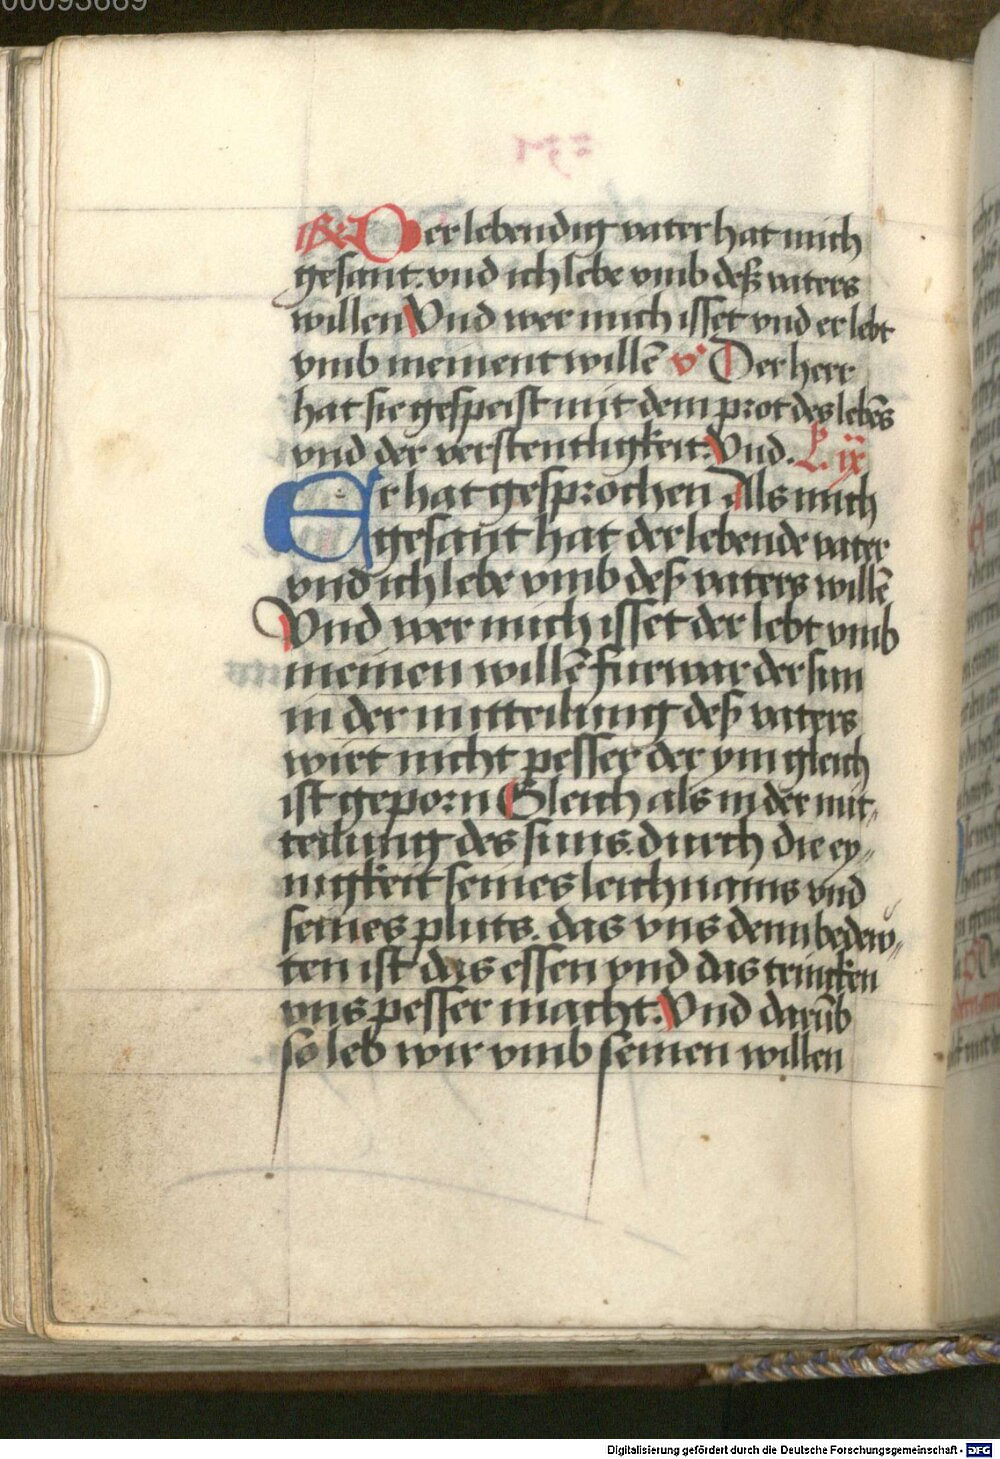 00093669
R Der lebendig vater hat mich
gesant. vnd ich lebe vmb deß vaters
willen Vnd wer mich isset vnd er lebt
vmb mement willē v Der herr
hat sie gespeist mit dem prot des lebēs
vnd der verstentligkeit. Vnd. L. ix
Er hat gesprochen Als mich
gesant hat der lebende vater
vnd ich lebe vmb deß vaters willē
Vnd wer mich isset der lebt vmb
meinen willē furwar der sun
in der mitteilung deß vaters
wirt nicht pesser der ym gleich
ist geporn Gleich als in der mit-
teilung des suns. durch die ey-
nigkeit seines leichnams vnd
seines pluts. das vns denn bedew-
ten ist das essen vnd das trincken
vns pesser macht. Vnd darūb
so leb wir vmb seinen willen
Digitalisierung gefördert durch die Deutsche Forschungsgemeinschaft - DFG